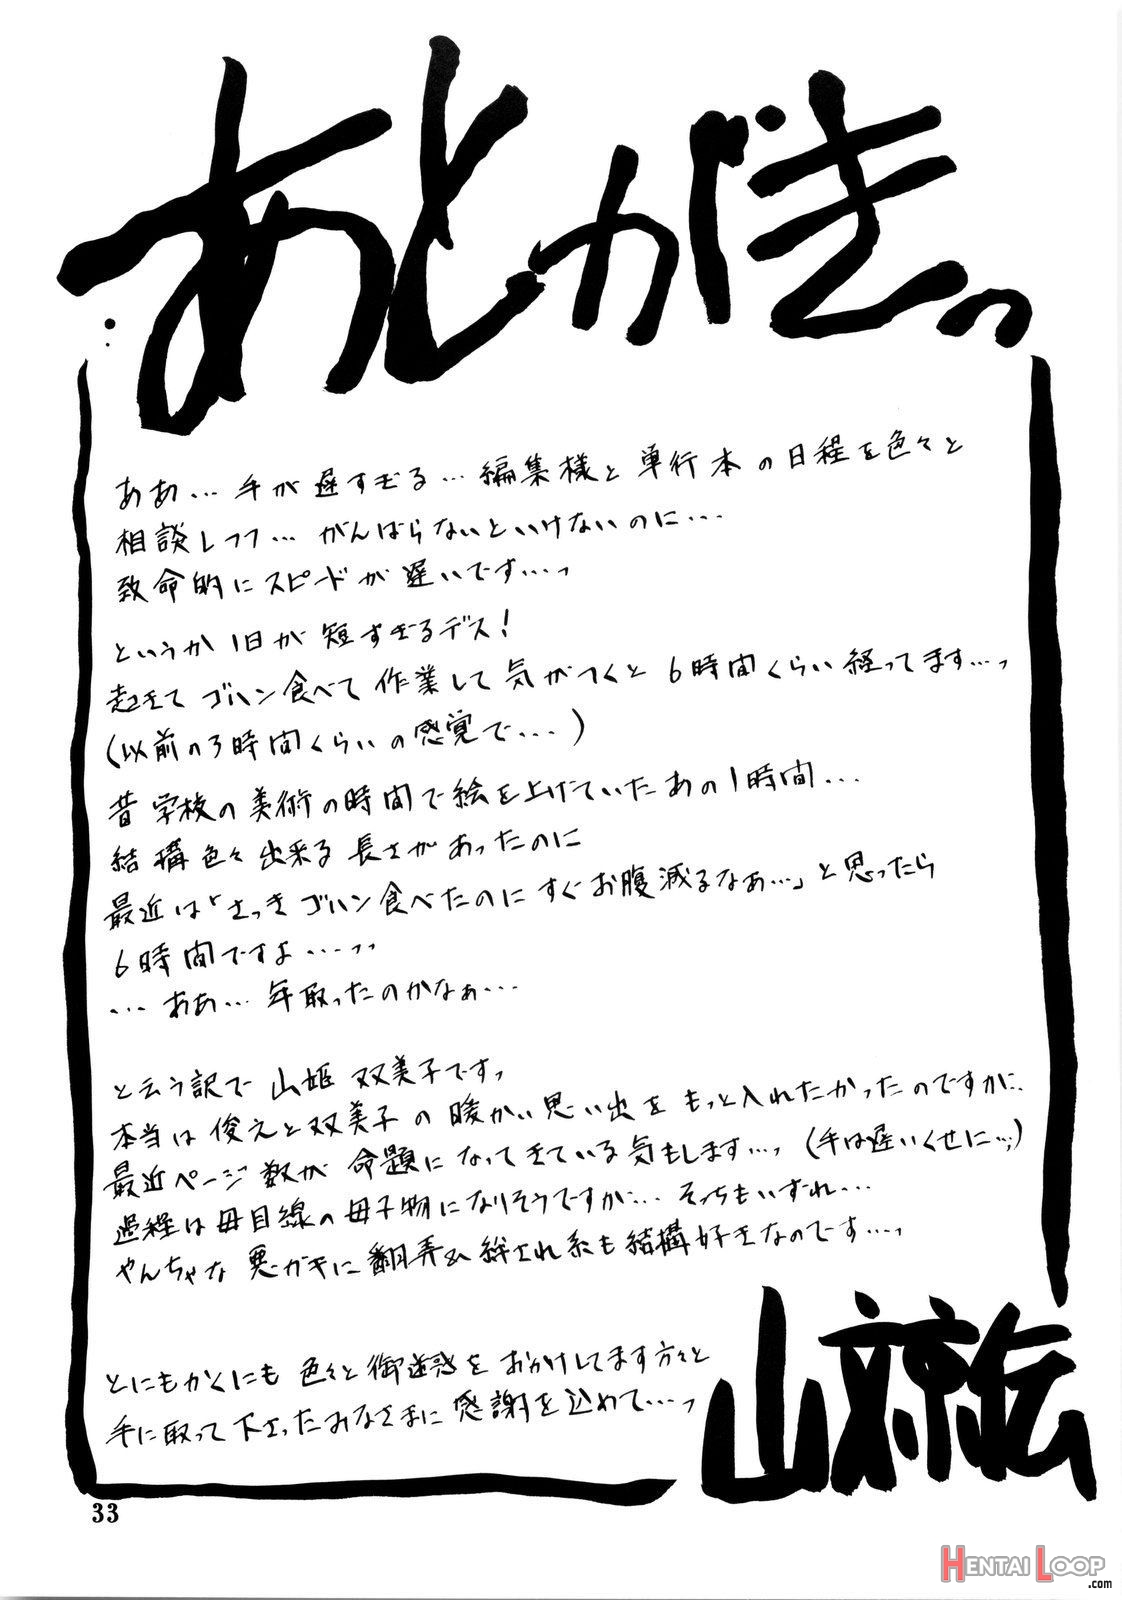 あとがきっ
ああ…手が遅すぎる…編集様と単行本の日程を色々と
相談しつつ…がんばらないといけないのに…
致命的にスピードが遅いです…っ
というか1日が短すぎるデス!
起きてゴハン食べて作業して気がつくと6時間くらい経ってます…っ
(以前の3時間くらいの感覚で…)
昔学校の美術の時間で絵を上げていたあの1時間…
結構色々出来る長さがあったのに
最近は「さっきゴハン食べたのにすぐお腹減るなぁ…」と思ったら
6時間ですよ…っっ
…ああ…年取ったのかなぁ…
と云う訳で山姫双美子ですっ
本当は俊之と双美子の暖かい思い出をもっと入れたかったのですが、
最近ページ数が命題になってきている気もします…っ(手は遅いくせに…;)
過程は母目線の母子物になりそうですが…そっちもいずれ…
やんちゃな悪ガキに翻弄&絆され系も結構好きなのです…っ
とにもかくにも色々と御迷惑をおかけしてます方々と
手に取って下さったみなさまに感謝を込めて…っ
山文京伝
33
HENTAI LOOP
.com